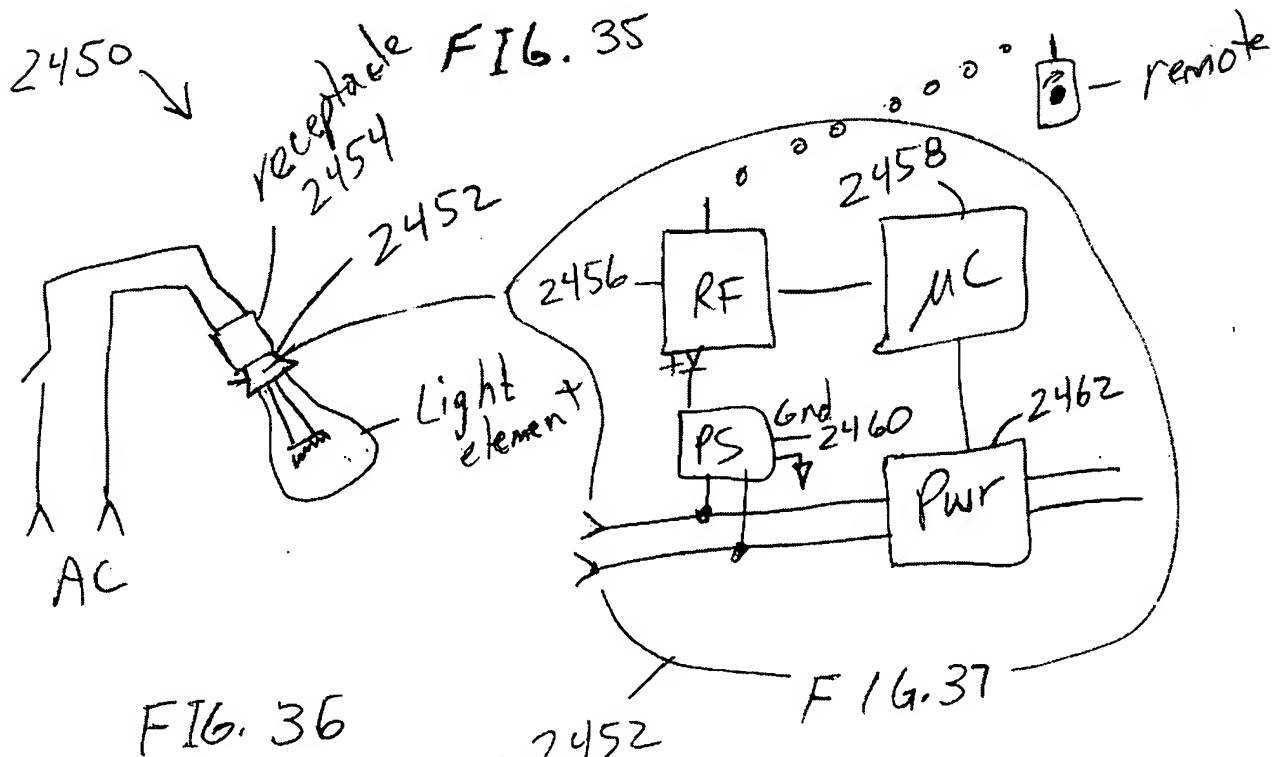 2450
receptacle
2454
FIG. 35
remote
2452
2458
2456
RF
μC
+V
Light
element
PS
Gnd
2460
2462
Pwr
AC
FIG. 36
2452
FIG. 37